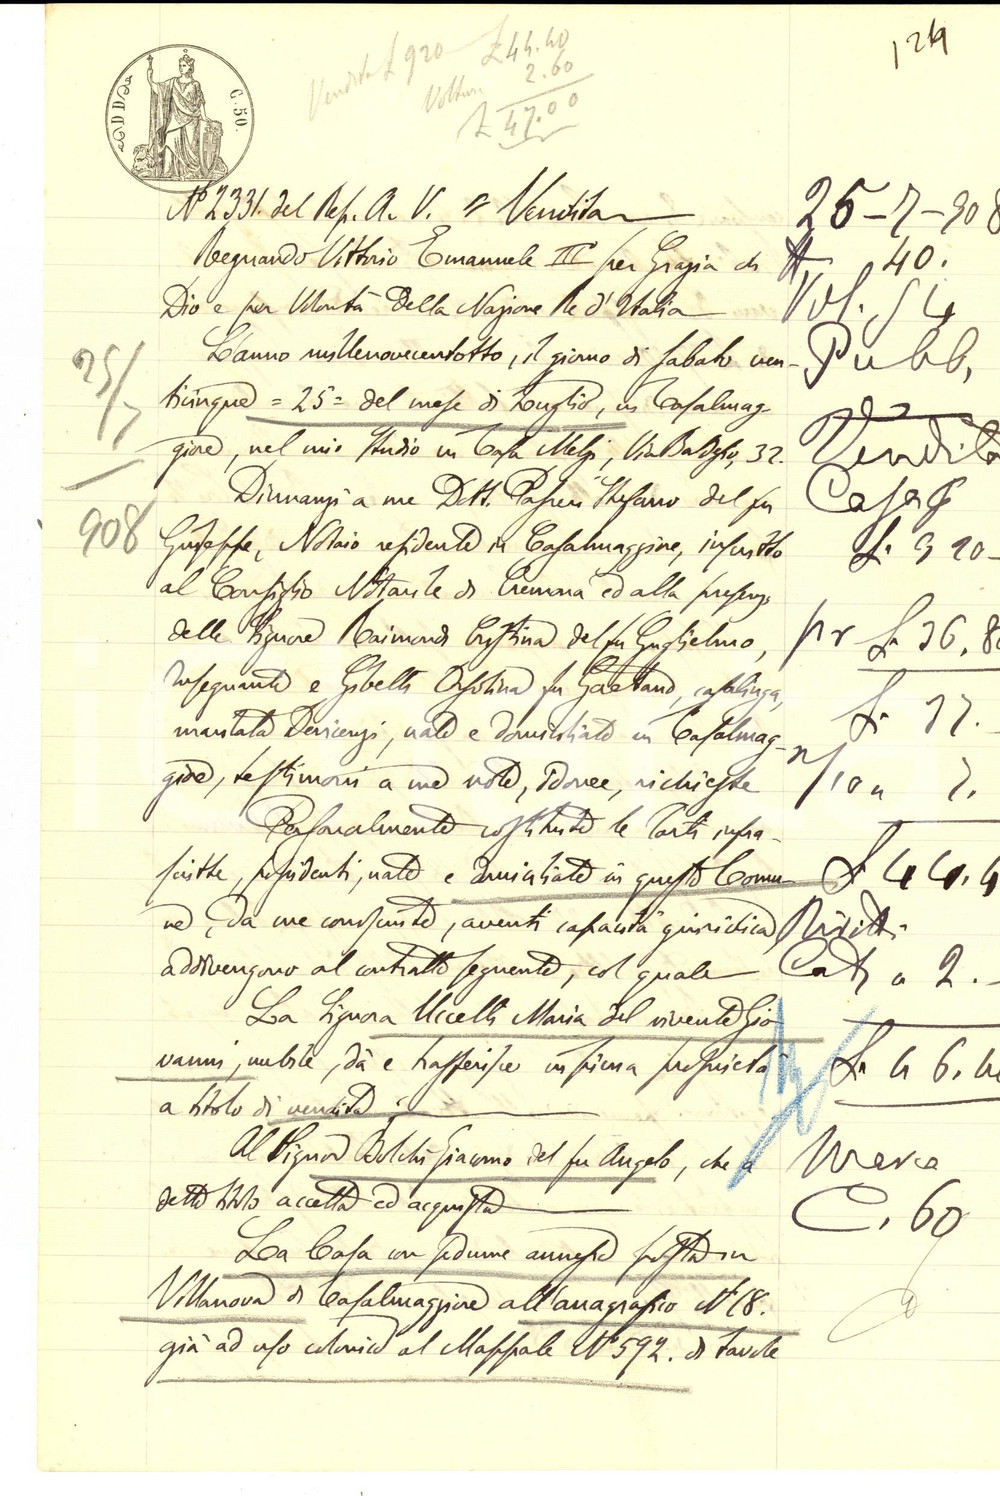 129
Vendita £ 920 £ 44.40
Volture 2.60
£ 47.00
C. 50.
N° 2331. del Rep. A. V. = Vendita
Regnando Vittorio Emanuele III per Grazia di
Dio e per Volontà della Nazione Re d'Italia
L'anno millenovecentotto, il giorno di sabato ven-
ticinque = 25 = del mese di Luglio, in Casalmag-
giore, nel mio studio in Casa Melzi, Via 32.
Dinnanzi a me Dott. Stefano del fu
Giuseppe, Notaio residente in Casalmaggiore, inscritto
al Consiglio Notarile di Cremona ed alla presenza
delle Signore Raimondi Cristina del fu Guglielmo,
insegnante e Gibelli Orsolina fu Gaetano, casalinga,
maritata Devicenzi, nate e domiciliate in Casalmag-
giore, testimoni a me note, idonee, richieste
Personalmente costituite le Parti infra-
scritte, possidenti, nate e domiciliate in questo Comu-
ne, da me conosciute, aventi capacità giuridica,
addivengono al contratto seguente, col quale
La Signora Uccelli Maria del vivente Gio
vanni, nubile, dà e trasferisce in piena proprietà
a titolo di vendita =
Al Signor Bolchi Giacomo del fu Angelo, che a
detto titolo accetta ed acquista
La Casa con sedume annesso posta in
Villanova di Casalmaggiore all'anagrafico N° 18.
già ad uso colonico al Mappale N° 592. di tavole
25/7
908
25-7-908
40.
Vol. 54
Pubb,
Vendita
Casa
£. 920-
pr £. 36.80
£. 37.-
n/10 a 7.
£. 44.4
Diritti
Cat. a 2.-
£. 46.40
Marca
C. 60